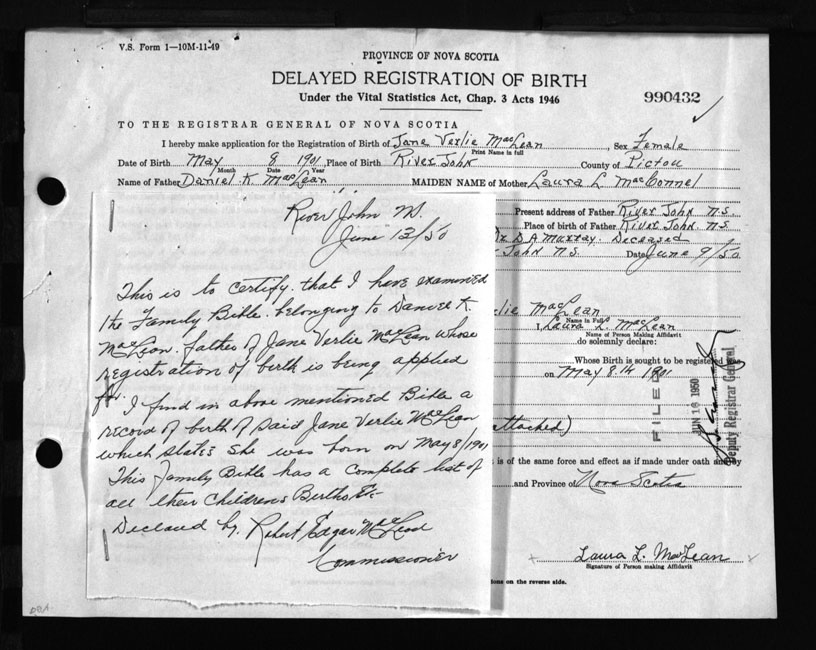 V.S. Form 1—10M-11-49
PROVINCE OF NOVA SCOTIA
DELAYED REGISTRATION OF BIRTH
Under the Vital Statistics Act, Chap. 3 Acts 1946
990432
TO THE REGISTRAR GENERAL OF NOVA SCOTIA
I hereby make application for the Registration of Birth of Jane Verlie MacLean, Sex Female
Print Name in full
Date of Birth May 8 1901, Place of Birth River John County of Pictou
Month Date Year
Name of Father Daniel K. MacLean MAIDEN NAME of Mother Laura L MacConnel
Present address of Father River John N.S.
Place of birth of Father River John N.S.
Dr D A Murray. Deceased
John N.S. Date June 9/50
River John N.S.
June 13/50
This is to certify that I have examined
the Family Bible. belonging to Daniel K.
MacLean. father of Jane Verlie MacLean whose
registration of birth is being applied
for.
I find in above mentioned Bible a
record of birth of said Jane Verlie MacLean
which states she was born on May 8/1901
This Family Bible has a complete list of
all their Childrens Births Etc
Declared by Robert Edgar MacLeod
Commissioner
lie MacLean
Name in Full
Laura L. MacLean
Name of Person Making Affidavit
do solemnly declare:
Whose Birth is sought to be registered was
on May 8th 1901
FILED
JUN 16 1950
Deputy Registrar General
attached)
is of the same force and effect as if made under oath and by
and Province of Nova Scotia
Laura L. MacLean
Signature of Person making Affidavit
ions on the reverse side.